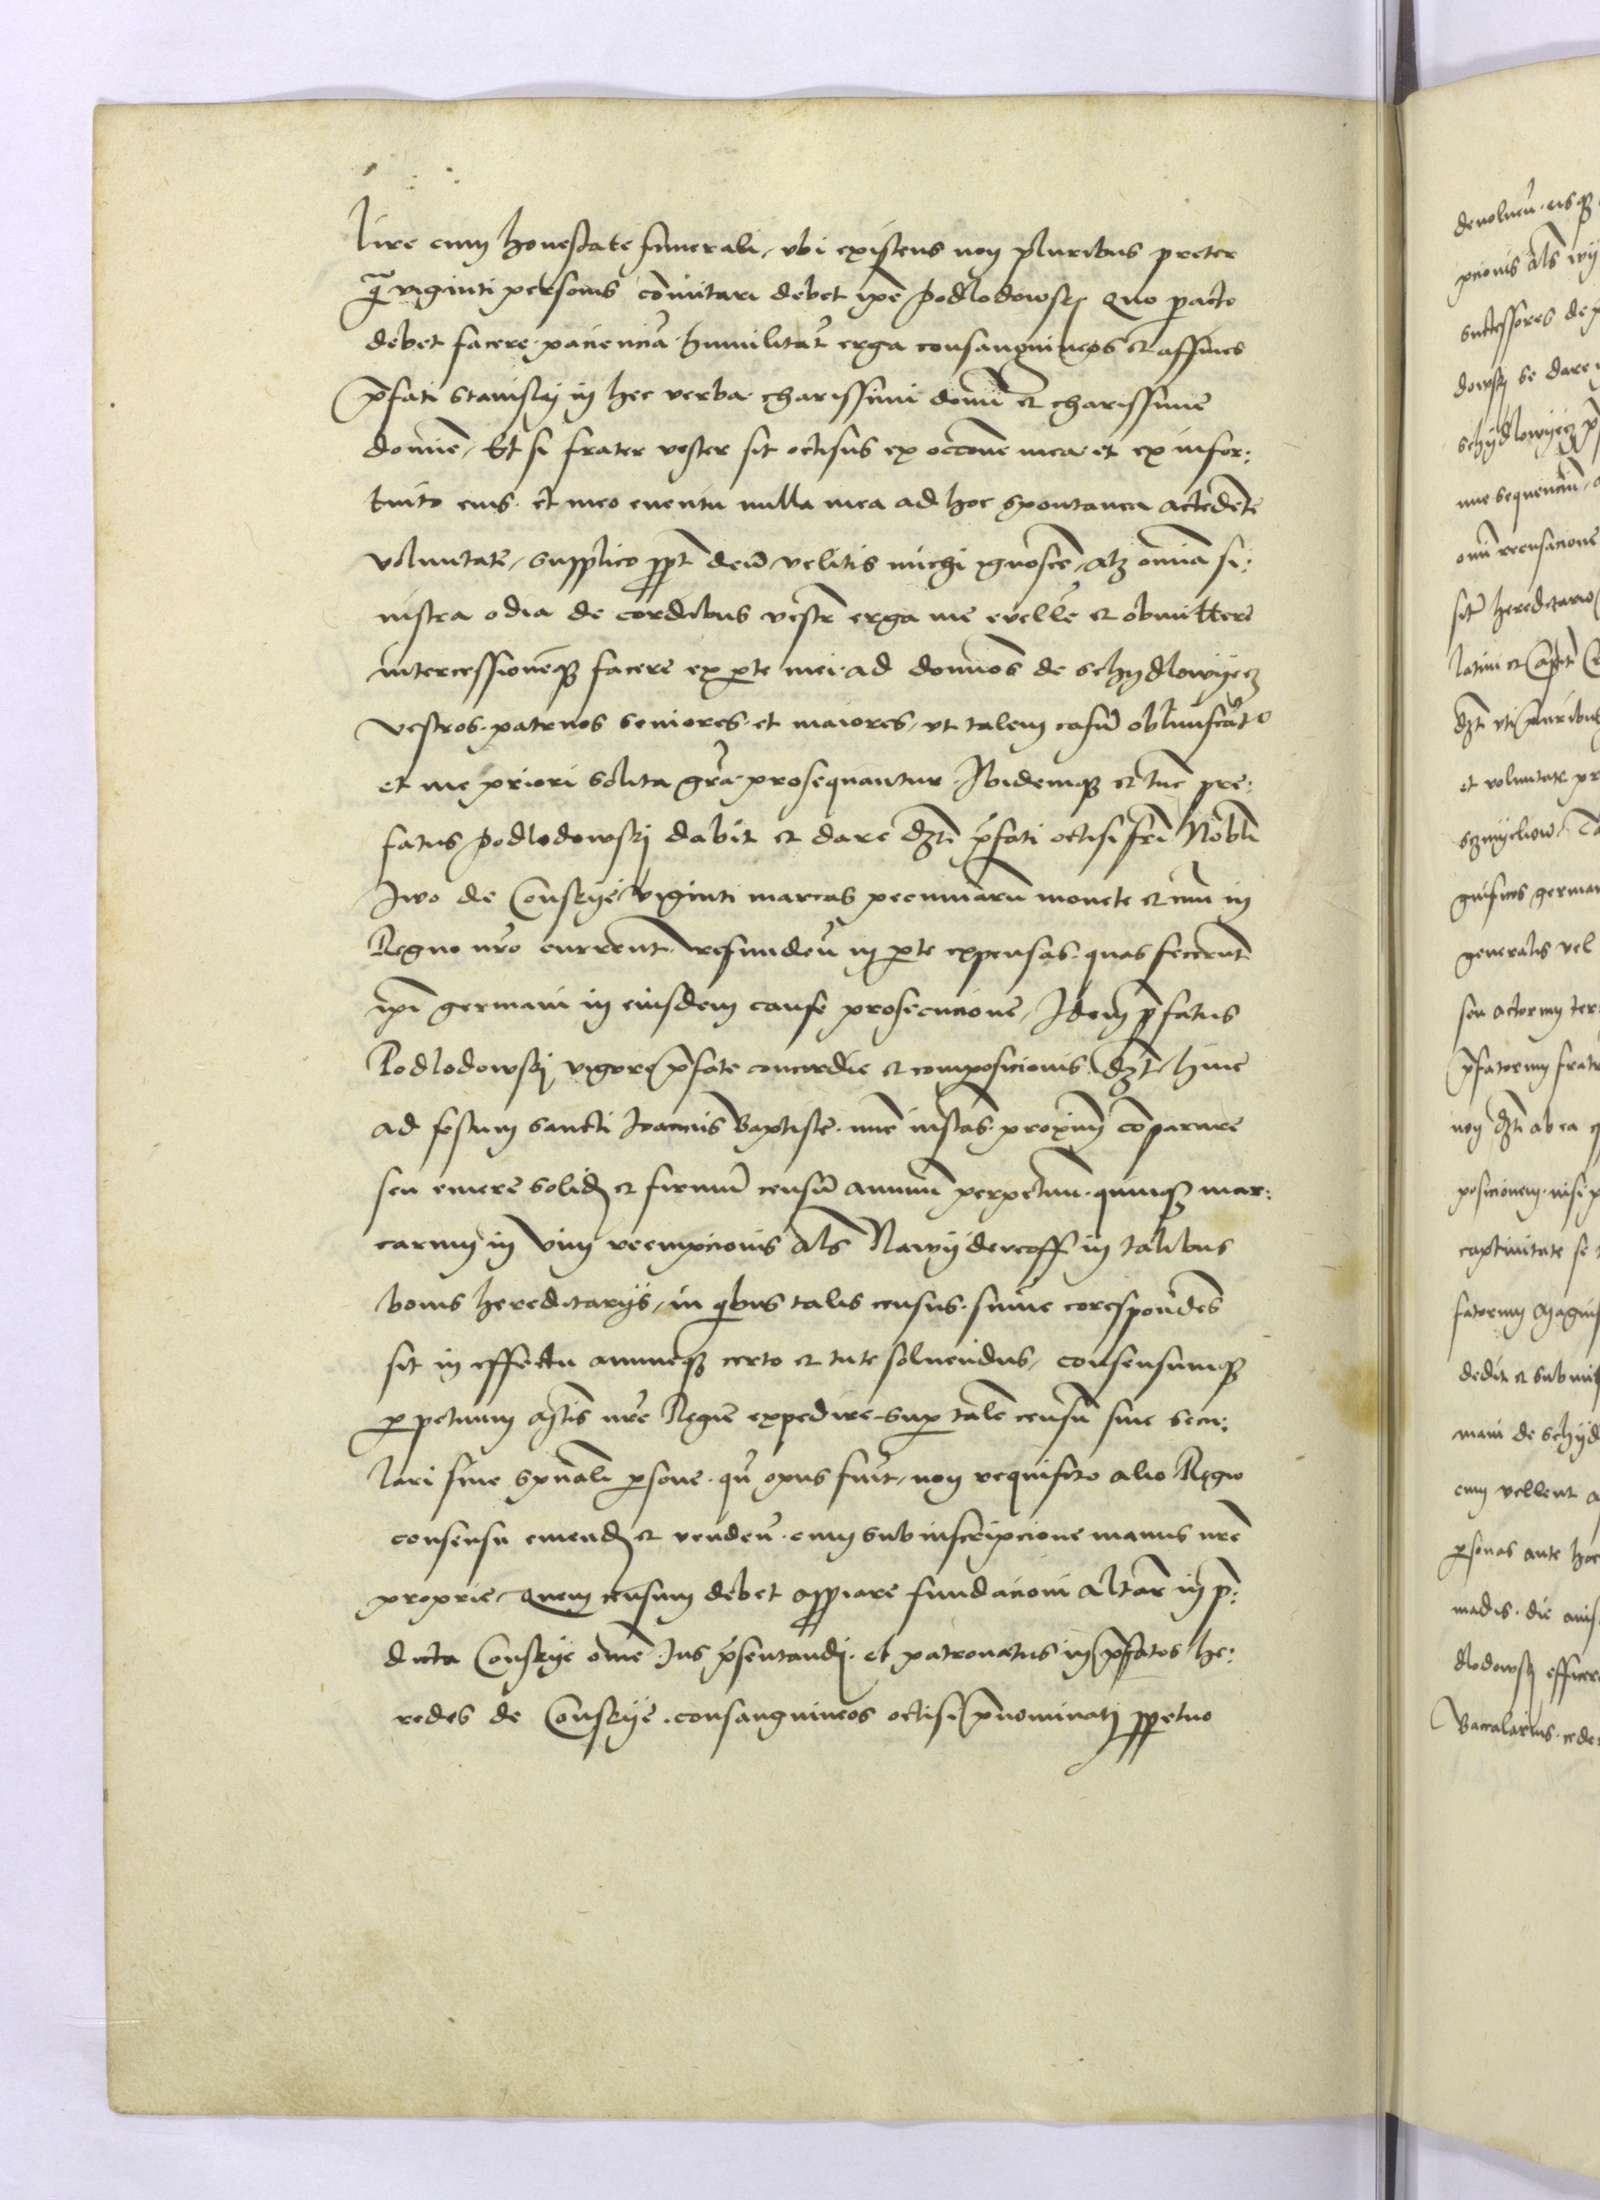 lire cum honestate funerali, vbi existens non pluribus preter
q̃ viginti personis cōmitari debet ip̄e Podlodowskj Quo pacto
debet facere pacienciā humilitat͛ erga consanguineos et affines
p̄fati Stanislaj in hec verba charissimi domī et charissime
domīe, Et si frater vester sit occisus ex occōne mea et ex infor:
tuito eius et meo euentu nulla mea ad hoc spontanea accedēte
voluntate, supplico pp̄t deū velitis michi ignosce͛, atq₃ omīa si:
nistra odia de cordibus vestr̄ erga me euelle͛ et obmittere
intercessionēq₃ facere ex ꝑte mei ad domīos de Schydlowyecz
vestros patruos seniores et maiores, vt talem casū obliuiscāt͛
et me priori solita gr̄a prosequantur Ibidemq₃ et tūc pre:
fatus Podlodowskj dabit et dare d₃ p̄fati occisi fr̄i Nobli
Iwo de Conskye viginti marcas pecuniarū monete et nūi in
Regno nr̄o current̄ refundeñ in ꝑte expensas quas fecerūt
ip̄i germani in eiusdem cause prosecucione, Idem p̄fatus
Podlodowskj vigore p̄fate concordie et composicionis d₃ hinc
ad festum sancti Ioannis Baptiste nūc instās proximū cōparare
seu emere solidū et firmū censū annuū perpetuū quinq₃ mar:
carum in vim reempcionis Als Nawydercoff in talibus
bonis hereditarijs, in qⁱbus talis census summe corespondēs
sit in effectu annueq₃ certo et tute soluendus, consensumq₃
ꝑpetuum nr̄e Regie expedire suꝑ talē censū siue secu:
lari siue spūali ꝑsone qū opus fuīt, non requisito alio Regio
consensu emendj et vendeñ cum subinscripcione manus nr̄e
proprie, Quem censum debet appropriare fundacioni Altar̄ in p̄:
dicta Conskye om̄e Ius p̄sentandj et patronatus in p̄fatos he:
redes de Conskye consanguineos occisi p̄nominati ꝑpetuo